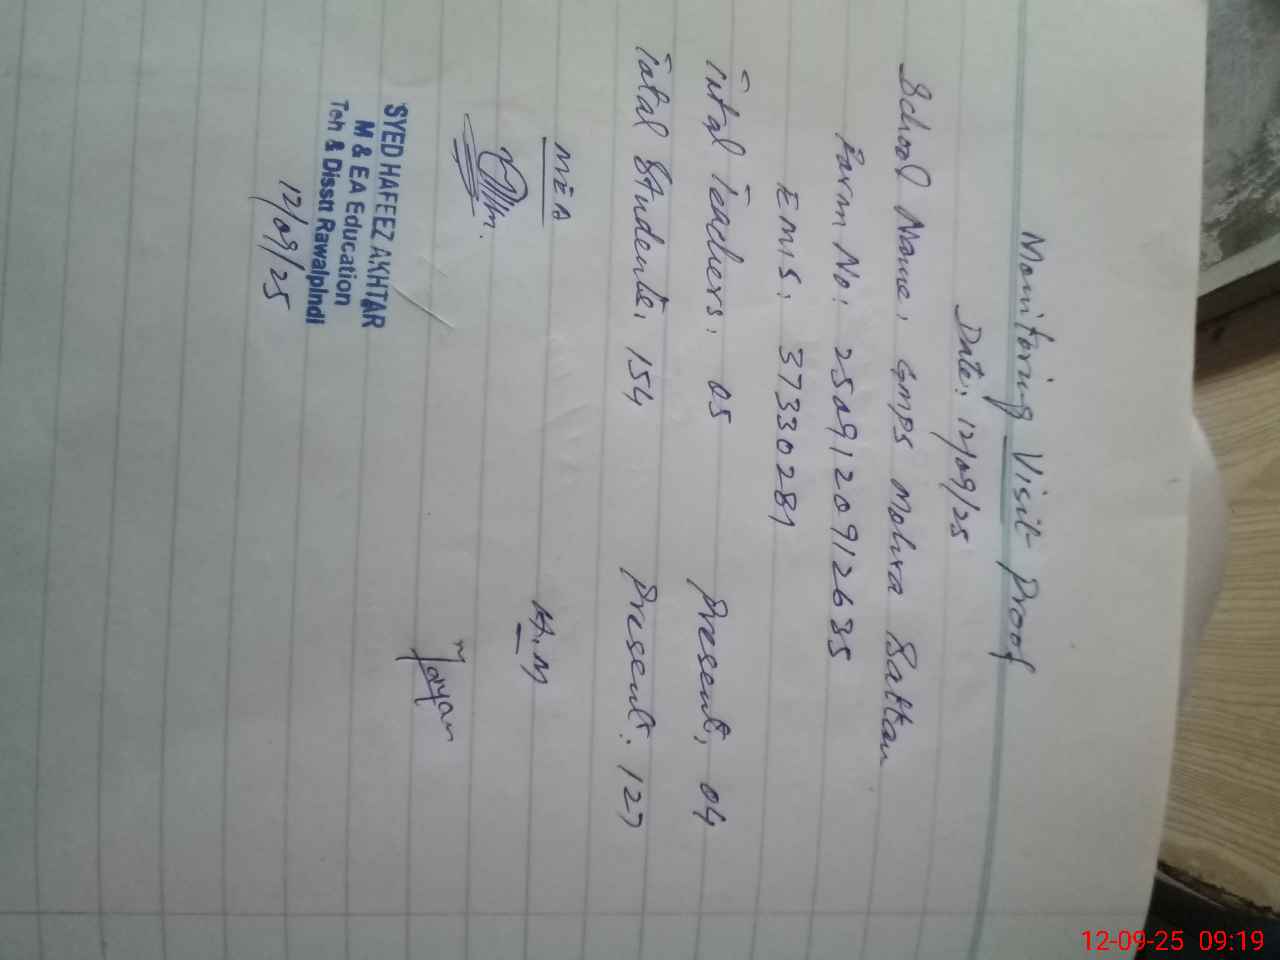 Monitoring Visit Proof
Date: 12/09/25
School Name: GMPS Mohra Battan
Farm No: 2509120912635
EMIS: 37330281
Total Teachers: 05 Present: 04
Total Students: 154 Present: 127
MEA H.M
Maryam
SYED HAFEEZ AKHTAR
M & EA Education
Teh & Disstt Rawalpindi
12/09/25
12-09-25 09:19